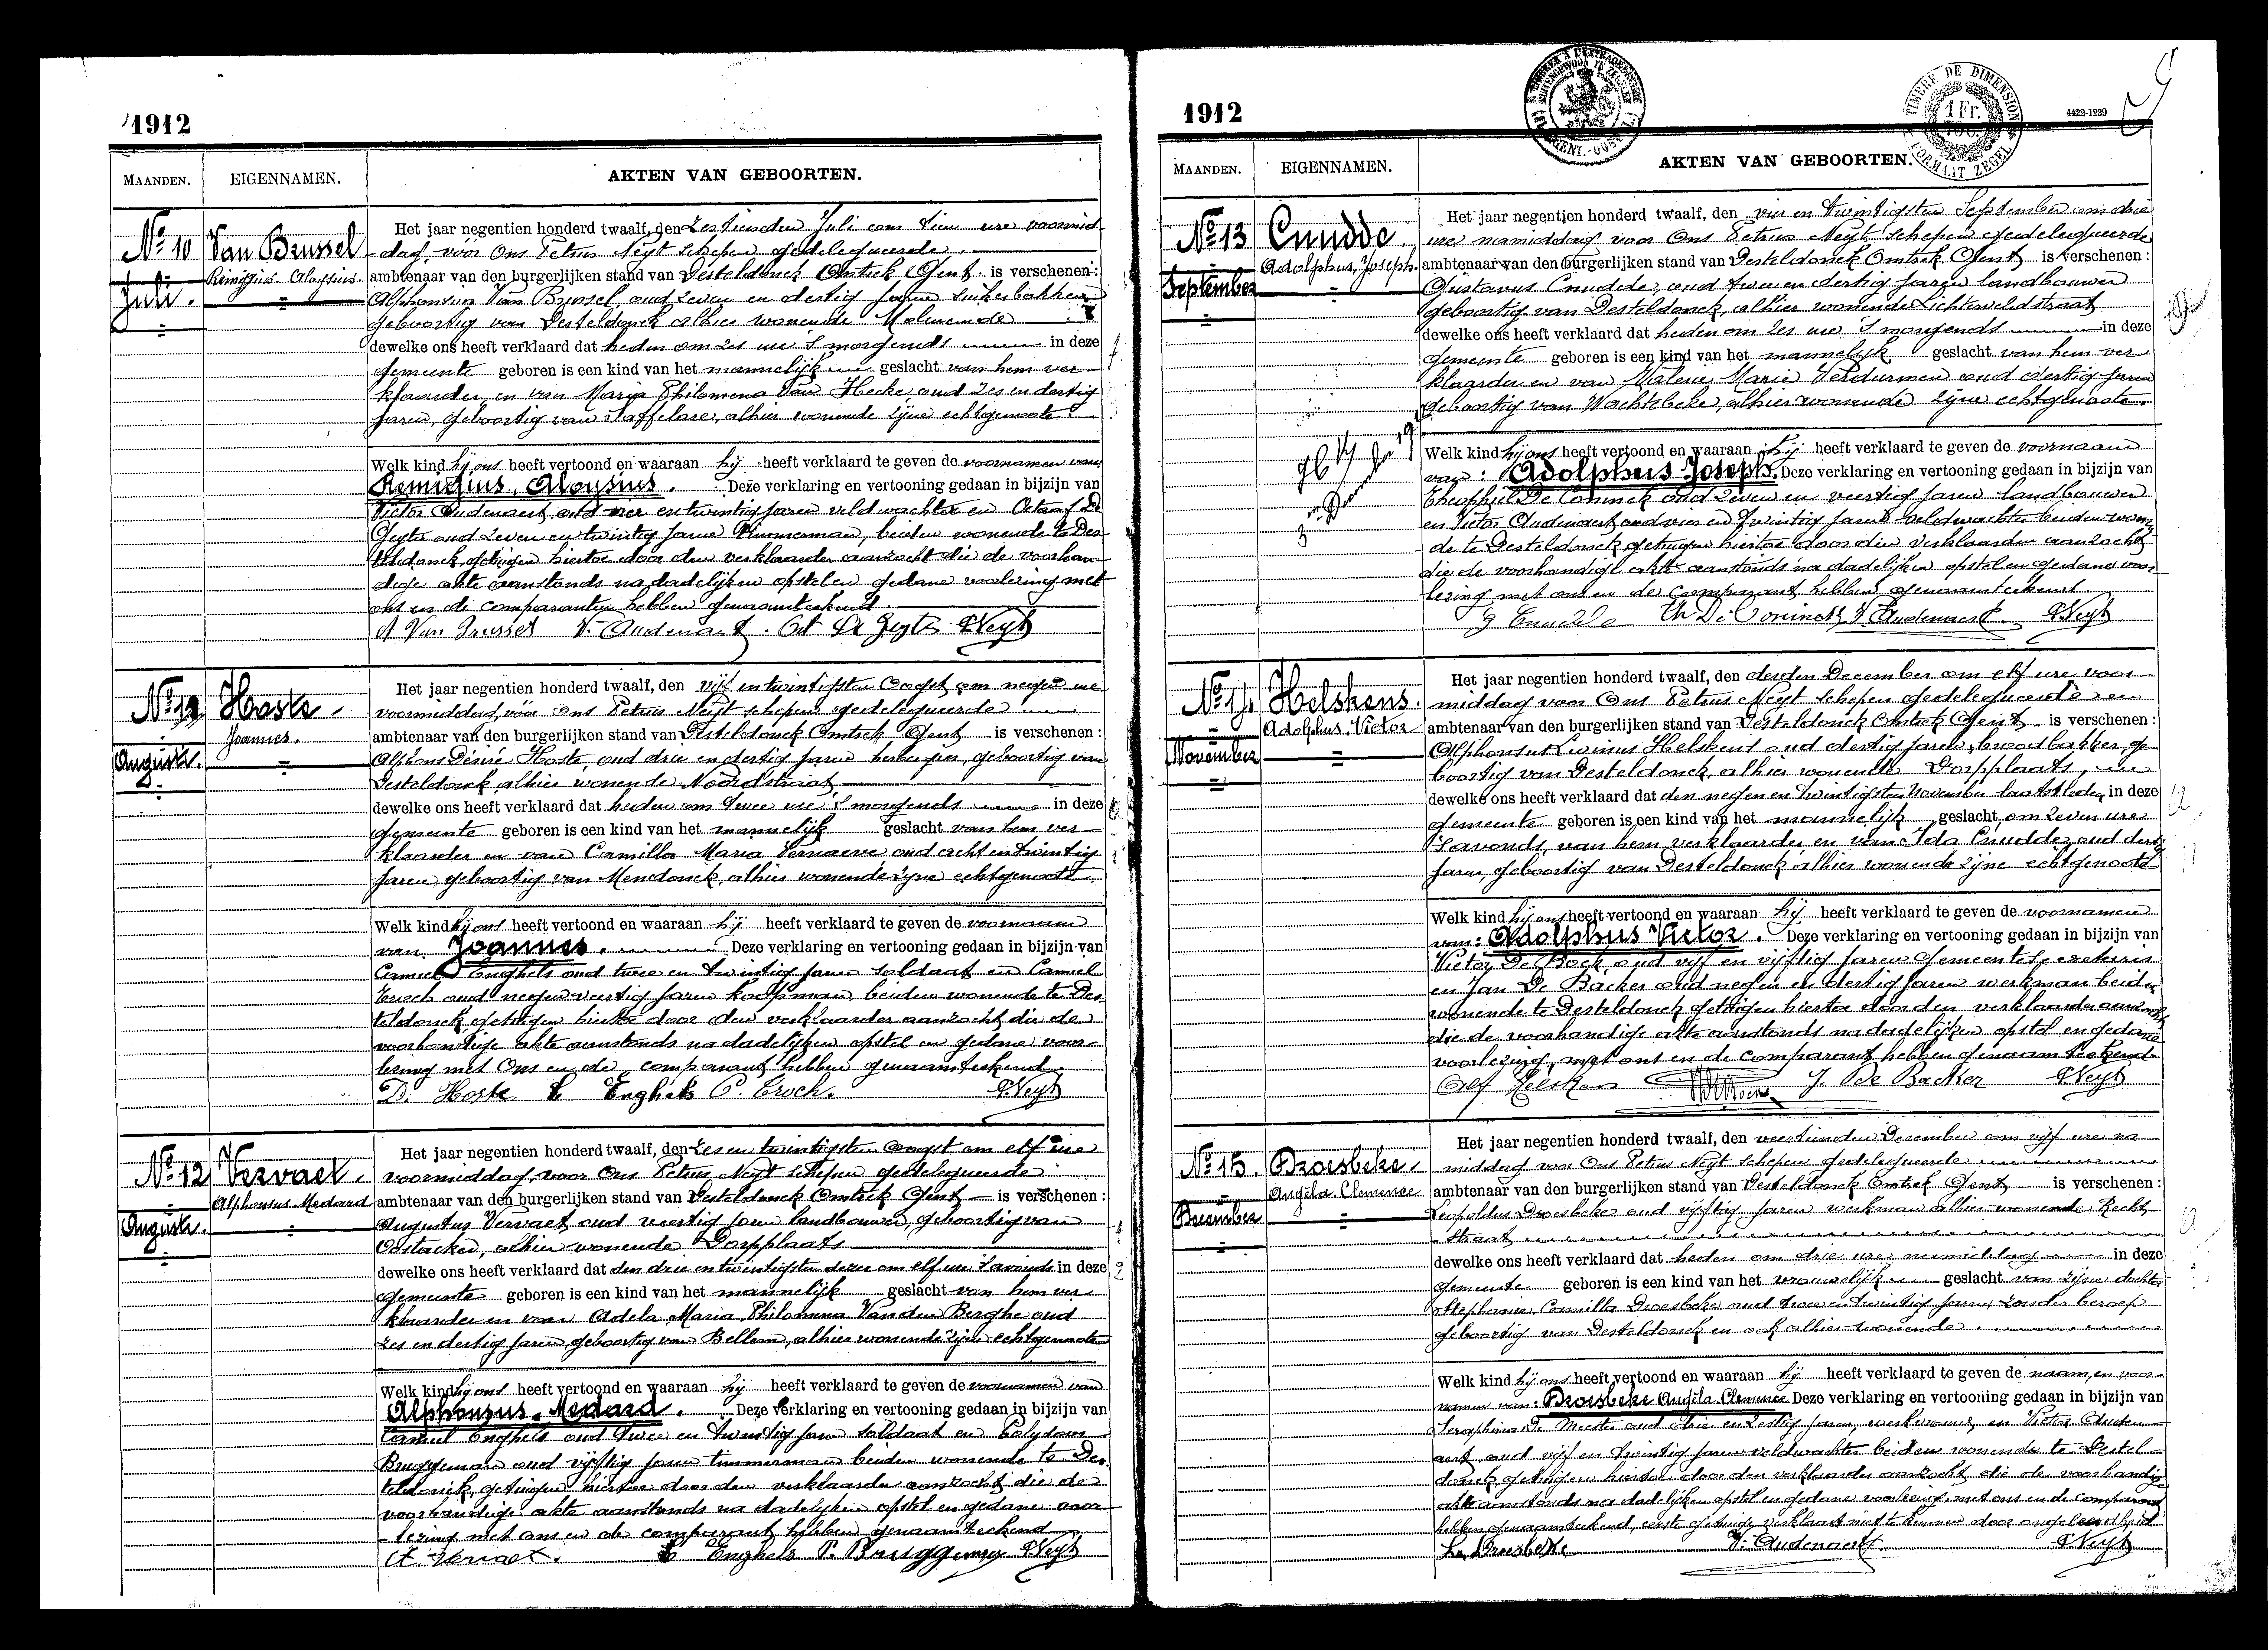 1912
MAANDEN. EIGENNAMEN. AKTEN VAN GEBOORTEN.
No 10 Van Brussel
Remigius Aloysius
Juli.
Het jaar negentien honderd twaalf, den zestienden Juli om tien ure voormid-
dag, voor Ons Petrus Neyt schepen gedelegueerde
ambtenaar van den burgerlijken stand van Desteldonck Omtrek Gent is verschenen:
Alphonsus Van Brussel, oud zeven en dertig jaren suikerbakker
geboortig van Desteldonck alhier wonende Moleneinde
dewelke ons heeft verklaard dat heden om zes ure 's morgends in deze
gemeente geboren is een kind van het mannelijk geslacht van hem ver-
klaarder, en van Maria Philomena Van Hecke oud zes en dertig
jaren, geboortig van Saffelare, alhier wonende zijne echtgenoote.
Welk kind hij ons heeft vertoond en waaraan hij heeft verklaard te geven de voornamen van
Remigius, Aloysius. Deze verklaring en vertooning gedaan in bijzijn van
Victor Audenaert, oud vier en twintig jaren veldwachter en Octaaf De
Geyter oud zeven en twintig jaren Timmerman, beiden wonende te Des-
teldonck, getuigen hiertoe door den verklaarder aanzocht die de voorhan-
dige akte aanstonds na dadelijken opstel en gedane voorlezing met
ons en de comparanten hebben genaamteekend.
A Van Brussel V. Audenaert. Oct De Geyter PNeyt
Hoste
Joannes.
Augusti.
Het jaar negentien honderd twaalf, den vijf en twintigsten Oogst om negen ure
voormiddag, voor Ons Petrus Neyt schepen gedelegueerde
ambtenaar van den burgerlijken stand van Desteldonck Omtrek Gent is verschenen:
Alphons Désiré Hoste, oud drie en dertig jaren herbergier, geboortig van
Desteldonck alhier wonende Noordstraat
dewelke ons heeft verklaard dat heden om twee ure 's morgends in deze
gemeente geboren is een kind van het mannelijk geslacht van hem ver-
klaarder en van Camilla Maria Vernaeve oud acht en twintig
jaren, geboortig van Mendonck, alhier wonende zijne echtgenoote
Welk kind hij ons heeft vertoond en waaraan hij heeft verklaard te geven de voornaam
van Joannes. Deze verklaring en vertooning gedaan in bijzijn van
Camiel Enghels oud twee en twintig jaren soldaat en Camiel
oud negen veertig jaren koopman, beiden wonende te Des-
teldonck getuigen hiertoe door den verklaarder aanzocht die de
voorhandige akte aanstonds na dadelijken opstel en gedane voor-
lezing met Ons en de comparant hebben genaamteekend.
D. Hoste C Enghels C. PNeyt
No 12 Vervaet.
Alphonsus Medard
Augusti.
Het jaar negentien honderd twaalf, den zes en twintigsten Oogst om elf ure
voormiddag, voor Ons Petrus Neyt schepen gedelegueerde
ambtenaar van den burgerlijken stand van Desteldonck Omtrek Gent is verschenen:
Augustus Vervaet oud veertig jaren landbouwer, geboortig van
Oostacker, alhier wonende Dorpplaats
dewelke ons heeft verklaard dat den drie en twintigsten dezer om elf ure 's avonds in deze
gemeente geboren is een kind van het mannelijk geslacht van hem ver
klaarder en van Adela Maria Philomena Vanden Berghe oud
zes en dertig jaren, geboortig van Bellem, alhier wonende zijne echtgenoote
Welk kind hij ons heeft vertoond en waaraan hij heeft verklaard te geven de voornamen van
Alphonsus, Medard. Deze verklaring en vertooning gedaan in bijzijn van
Camiel Enghels oud twee en twintig jaren soldaat en Polydoor
Bruggeman oud vijftig jaren timmerman beiden wonende te Des-
teldonck, getuigen hiertoe door den verklaarder aanzocht die de
voorhandige akte aanstonds na dadelijken opstel en gedane voor
lezing met ons en de comparant hebben genaamteekend
A. Vervaet. C Enghels P. Bruggeman PNeyt
1912
TIMBRE DE DIMENSION
1 Fr.
FORMAAT ZEGEL
4422-1239
MAANDEN. EIGENNAMEN. AKTEN VAN GEBOORTEN.
No 13 Cnudde.
Adolphus, Joseph.
September
Het jaar negentien honderd twaalf, den vier en twintigsten September om drie
ure namiddag voor Ons Petrus Neyt schepen gedelegueerde
ambtenaar van den burgerlijken stand van Desteldonck Omtrek Gent is verschenen:
Gustavus Cnudde, oud twee en dertig jaren landbouwer
geboortig van Desteldonck, alhier wonende Lichtaveldstraat
dewelke ons heeft verklaard dat heden om zes ure 's morgends in deze
gemeente geboren is een kind van het mannelijk geslacht van hem ver-
klaarder en van Valerie Marie Verdurmen oud dertig jaren
geboortig van Wachtebeke, alhier wonende zijne echtgenoote.
Welk kind hij ons heeft vertoond en waaraan hij heeft verklaard te geven de voornaam
van: Adolphus Joseph. Deze verklaring en vertooning gedaan in bijzijn van
Theophiel De Coninck oud zeven en veertig jaren landbouwer
en Victor Audenaert oud vier en twintig jaren veldwachter beiden wonen-
de te Desteldonck, getuigen hiertoe door den verklaarder aanzocht
die de voorhandige akte aanstonds na dadelijken opstel en gedane voor
lezing met ons en de comparant hebben genaamteekend
G Cnudde Th De Coninck V Audenaert PNeyt
No 14 Helskens.
Adolphus Victor
November
Het jaar negentien honderd twaalf, den derden December om elf ure voor
middag voor Ons Petrus Neyt schepen gedelegueerde
ambtenaar van den burgerlijken stand van Desteldonck Omtrek Gent is verschenen:
Alphonsus Livinus Helskens oud dertig jaren, broodbakker, ge
boortig van Desteldonck, alhier wonende Dorpplaats,
dewelke ons heeft verklaard dat den negen en twintigsten November laatstleden in deze
gemeente geboren is een kind van het mannelijk geslacht, om zeven ure
's avonds, van hem verklaarder en van Ida Cnudde, oud dertig
jaren, geboortig van Desteldonck alhier wonende zijne echtgenoote
Welk kind hij ons heeft vertoond en waaraan hij heeft verklaard te geven de voornamen
van: Adolphus Victor. Deze verklaring en vertooning gedaan in bijzijn van
Victor De Bock oud vijf en vijftig jaren Gemeentesecretaris
en Jan De Backer oud negen en dertig jaren werkman beiden
wonende te Desteldonck getuigen hiertoe door den verklaarder aanzocht
die de voorhandige akte aanstonds na dadelijken opstel en gedane
voorlezing, met ons en de comparant hebben genaamteekend
Alf Helskens J. De Backer PNeyt
No 15. Droesbeke.
Angèla Clemence
December
Het jaar negentien honderd twaalf, den veertienden December om vijf ure na
middag voor Ons Petrus Neyt schepen gedelegueerde
ambtenaar van den burgerlijken stand van Desteldonck Omtrek Gent is verschenen:
Leopoldus Droesbeke oud vijftig jaren werkman alhier wonende Recht
straat
dewelke ons heeft verklaard dat heden om drie ure namiddag in deze
gemeente geboren is een kind van het vrouwelijk geslacht van zijne dochter
Stephanie, Camilla Droesbeke oud twee en twintig jaren, zonder beroep
geboortig van Desteldonck en ook alhier wonende.
Welk kind hij ons heeft vertoond en waaraan hij heeft verklaard te geven de naam, en voor-
namen van: Droesbeke Angèla Clemence Deze verklaring en vertooning gedaan in bijzijn van
Seraphina De Meester oud drie en zestig jaren, werkvrouw, en Victor Auden
aert, oud vijf en twintig jaren veldwachter beiden wonende te Destel
donck getuigen hiertoe door den verklaarder aanzocht die de voorhandige
akte aanstonds na dadelijken opstel en gedane voorlezing, met ons en de comparant
hebben genaamteekend, eerste getuige verklaart niet te kunnen door ongeleerdheid
L. Droesbeke V. Audenaert PNeyt